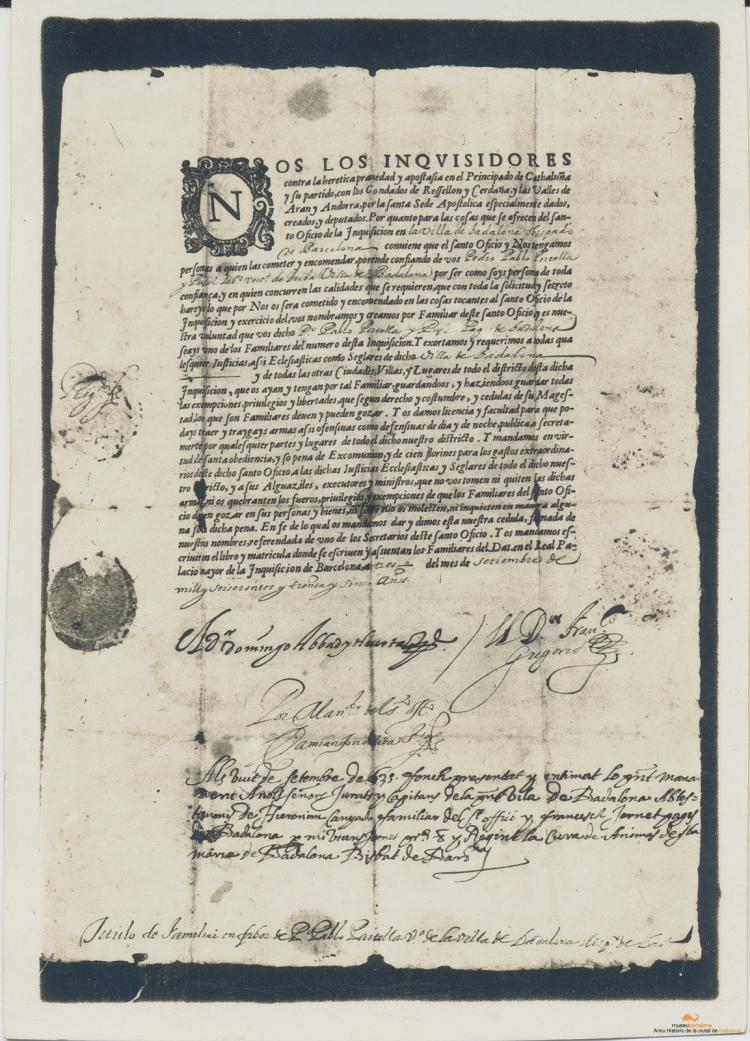 NOS LOS INQVISIDORES
contra la heretica pravedad y apostasia en el Principado de Cathaluña
y su partido, con los Condados de Rossellon y Cerdaña, y las Valles de
Aran y Andorra, por la santa Sede Apostolica especialmente dados,
creados, y deputados. Por quanto para las cosas que se ofrecen del san-
to Oficio de la Inquisicion en la Villa de badalona Obispado
de Barcelona conviene que el santo Oficio y Nos tengamos
personas a quien las cometer y encomendar, porende confiando de vos Pedro Pablo
de dicha Villa de Badalona por ser como soys persona de toda
confiança, y en quien concurren las calidades que se requieren, que con toda la solicitud y secreto
hareys lo que por Nos os sera cometido y encomendado en las cosas tocantes al santo Oficio de la
Inquisicion y exercicio del: vos nombramos y creamos por Familiar deste santo Oficio, y es nue-
stra voluntad que vos dicho Po Pablo de badalona
seays uno de los Familiares del numero desta Inquisicion. Y exortamos y requerimos a todas qua
lesquier Iusticias, assi Eclesiasticas como Seglares de dicho Villa de badalona
y de todas las otras Ciudades, Villas, y Lugares de todo el districto desta dicha
Inquisicion, que os ayan y tengan por tal Familiar, guardandoos, y haziendoos guardar todas
las exempciones, privilegios y libertades, que segun derecho y costumbre, y cedulas de su Mages-
tad los que son Familiares deven y pueden gozar. Y os damos licencia y facultad para que po-
days traer y traygays armas assi ofensivas como defensivas de dia y de noche, publica, o secreta-
mente por qualesquier partes y lugares de todo el dicho nuestro districto. Y mandamos en vir-
tud de santa obediencia, y so pena de Excomunion, y de cien florines para los gastos extraordina-
rios deste dicho santo Oficio a las dichas Iusticias Ecclesiasticas y Seglares de todo el dicho nues-
tro districto, y a sus Alguaziles, executores y ministros, que no vos tomen ni quiten las dichas
armas, ni os quebranten los fueros, privilegios, y exempciones de que los Familiares del santo Ofi-
cio deven gozar en sus personas y bienes, ni sobre ello os molesten, ni inquieten en manera algu-
na so la dicha pena. En fe de lo qual os mandamos dar y dimos esta nuestra cedula, firmada de
nuestros nombres, referendada de uno de los Secretarios deste santo Oficio. Y os mandamos es-
crivir en el libro y matricula donde se escriven y assientan los Familiares del. Dat. en el Real Pa-
lacio mayor de la Inquisicion de Barcelona, a tres del mes de setiembre de
mill y seiscientos y treinta y sinco Años.
Domingo Abbad y Huerta
Dor Franco
Gregorio
Por Mando
Damian
Als vuit de setembre de 635 fonch presentat y entimat lo
ment Als señors Jurats y Capitans de la Vila de Badalona Ab tes-
timonis de Hieronim Canyado familiar del St offici y francesch Jornet pages
de Badalona y Regint la Cura de Animas de sta
maria de Badalona Bisbat de Barna
Titulo de Familiar en favor de Po Pablo Vo de la Villa de badalona
museubadalona
Arxiu Històric de la ciutat de Badalona